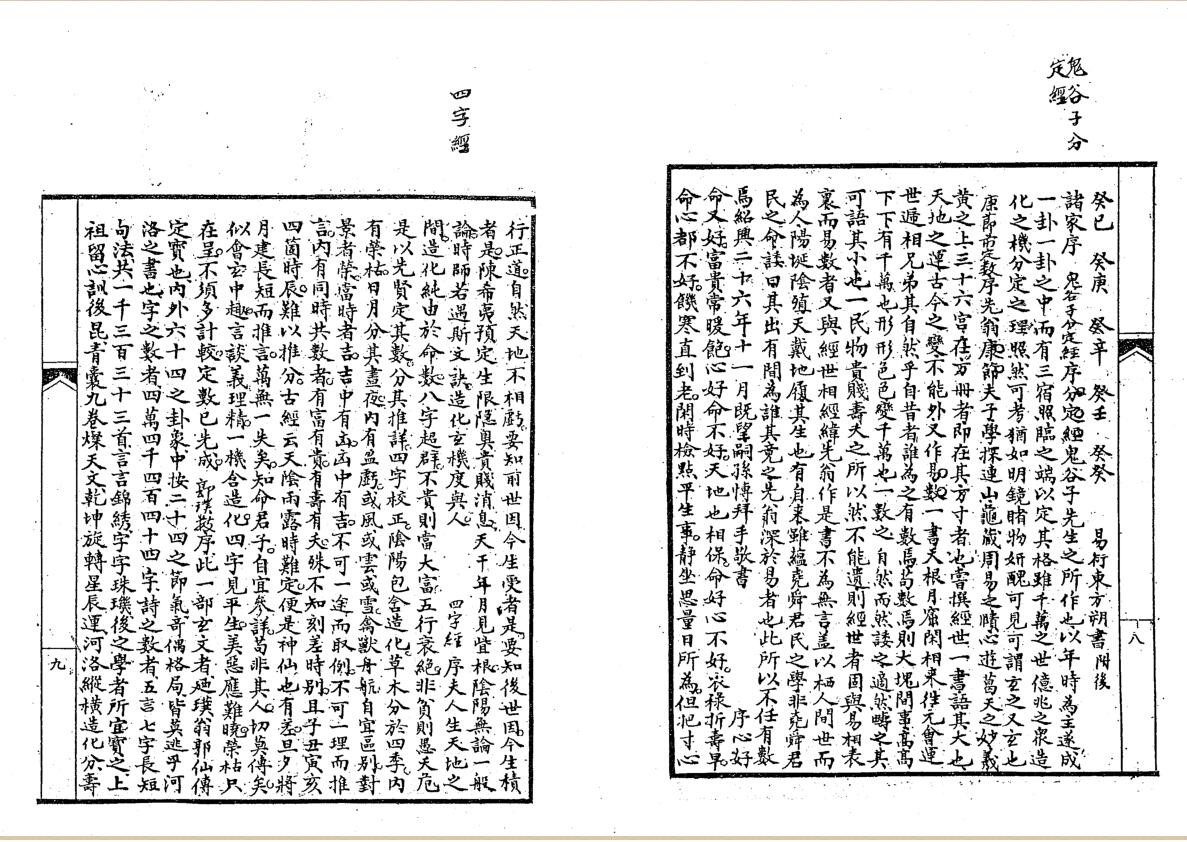 鬼谷子分
定經
癸巳　癸庚　癸辛　癸壬　癸癸　易衍東方朔書附後
諸家序　鬼谷子分定經序分定經鬼谷子先生之所作也以年時為主遂成
一卦一卦之中而有三宿照臨之端以定其格雖千萬之世億兆之衆造
化之機分定之理照然可考猶如明鏡睹物妍醜可見可謂玄之又玄也
康節前定數序先翁康節夫子學探連山龜藏周易之賾心遊萬天之妙義
黃之上三十六宮在方冊者即在其方寸者也嘗撰經世一書語其大也
天地之運古今之變不能外又作易數一書天根月窟閑相來往元會運
世遞相兄弟其自然乎自昔者誰為之有數焉苟數焉則大塊間事高高
下下有千萬也形形色色變千萬也一數之自然而然諉之適然疇之其
可語其小也一民物貴賤壽夭之所以然不能遺則經世者固與易相表
裏而易數者又與經世相經緯先翁作是書不為無言盖以栖人間世而
為人陽埏陰殖天戴地履其生也有自来雖蘊堯舜君民之學非堯舜君
民之命諉曰其出有間為誰其竟之先翁深於易者也此所以不任有數
焉紹興二十六年十一月既望嗣孫慱拜手敬書　序心好
命又好富貴常暖飽心好命不好天地也相保命好心不好衣祿折壽早
命心都不好饑寒直到老閑時檢點平生事靜坐思量日所為但把寸心
八
四字經
行正道自然天地不相虧要知前世因今生受者是要知後世因今生積
者是陳希夷預定生限隱奧貴賤消息天干年月見宜根陰陽無論一般
論時師若遇斯文訣造化玄機度與人　四字經序夫人生天地之
間造化純由於命數八字超群不貴則當大富五行衰絕非貧則愚夭危
是以先賢定其數分其推詳四字校正陰陽包含造化草木分於四季內
有榮枯日月分其晝夜內有盈虧或風或雲或雪禽獸舟航自宜區別對
景者榮當時者吉吉中有凶凶中有吉不可一途而取例不可一理而推
言內有同時共數者有富有貴有壽有夭殊不知刻差時別且子丑寅亥
四箇時辰難以推分古經云天陰雨露時難定便是神仙也有差旦夕將
月建長短而推言萬無一失矣知命君子自宜參詳苟非其人切莫傳矣
似會玄中趣言談義理精一機含造化四字見平生美惡應難曉榮枯只
在呈不須多計較定數已先成　郭璞數序此一部玄文者廼璞翁郭仙傳
定寶也內外六十四之卦象中按二十四之節氣奇偶格局皆莫逃乎河
洛之書也字之數者四萬四千四百四十四字詩之數者五言七字長短
句法共一千三百三十三首言言錦綉字字珠璣後之學者所宜寶之上
祖留心訓後昆青囊九卷燦天文乾坤旋轉星辰運河洛縱橫造化分壽
九